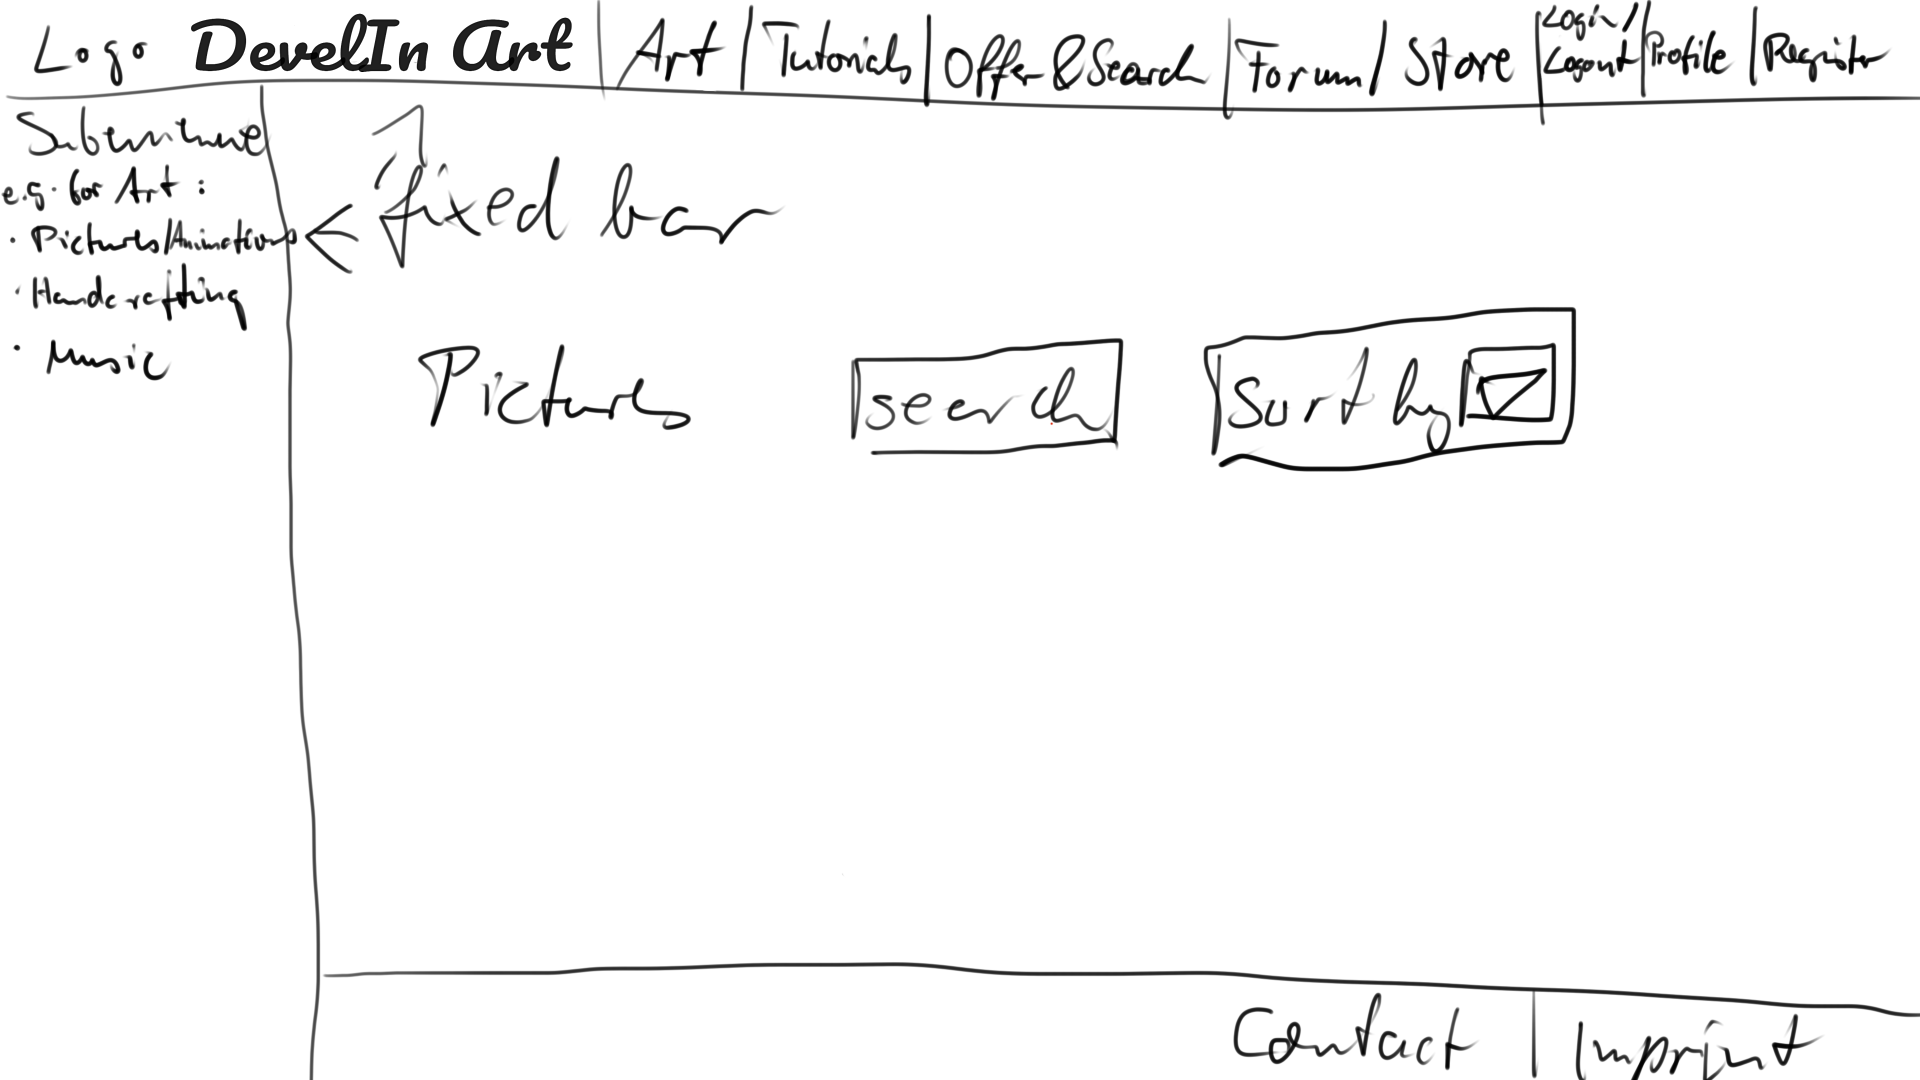 Logo DevelIn Art | Art | Tutorials | Offer & Search | Forum | Store | Login/Logout | Profile | Register
Submenue
e.g. for Art:
· Pictures/Animations
· Handcrafting
· Music
fixed bar
Pictures
search
Sort by
Contact | Imprint